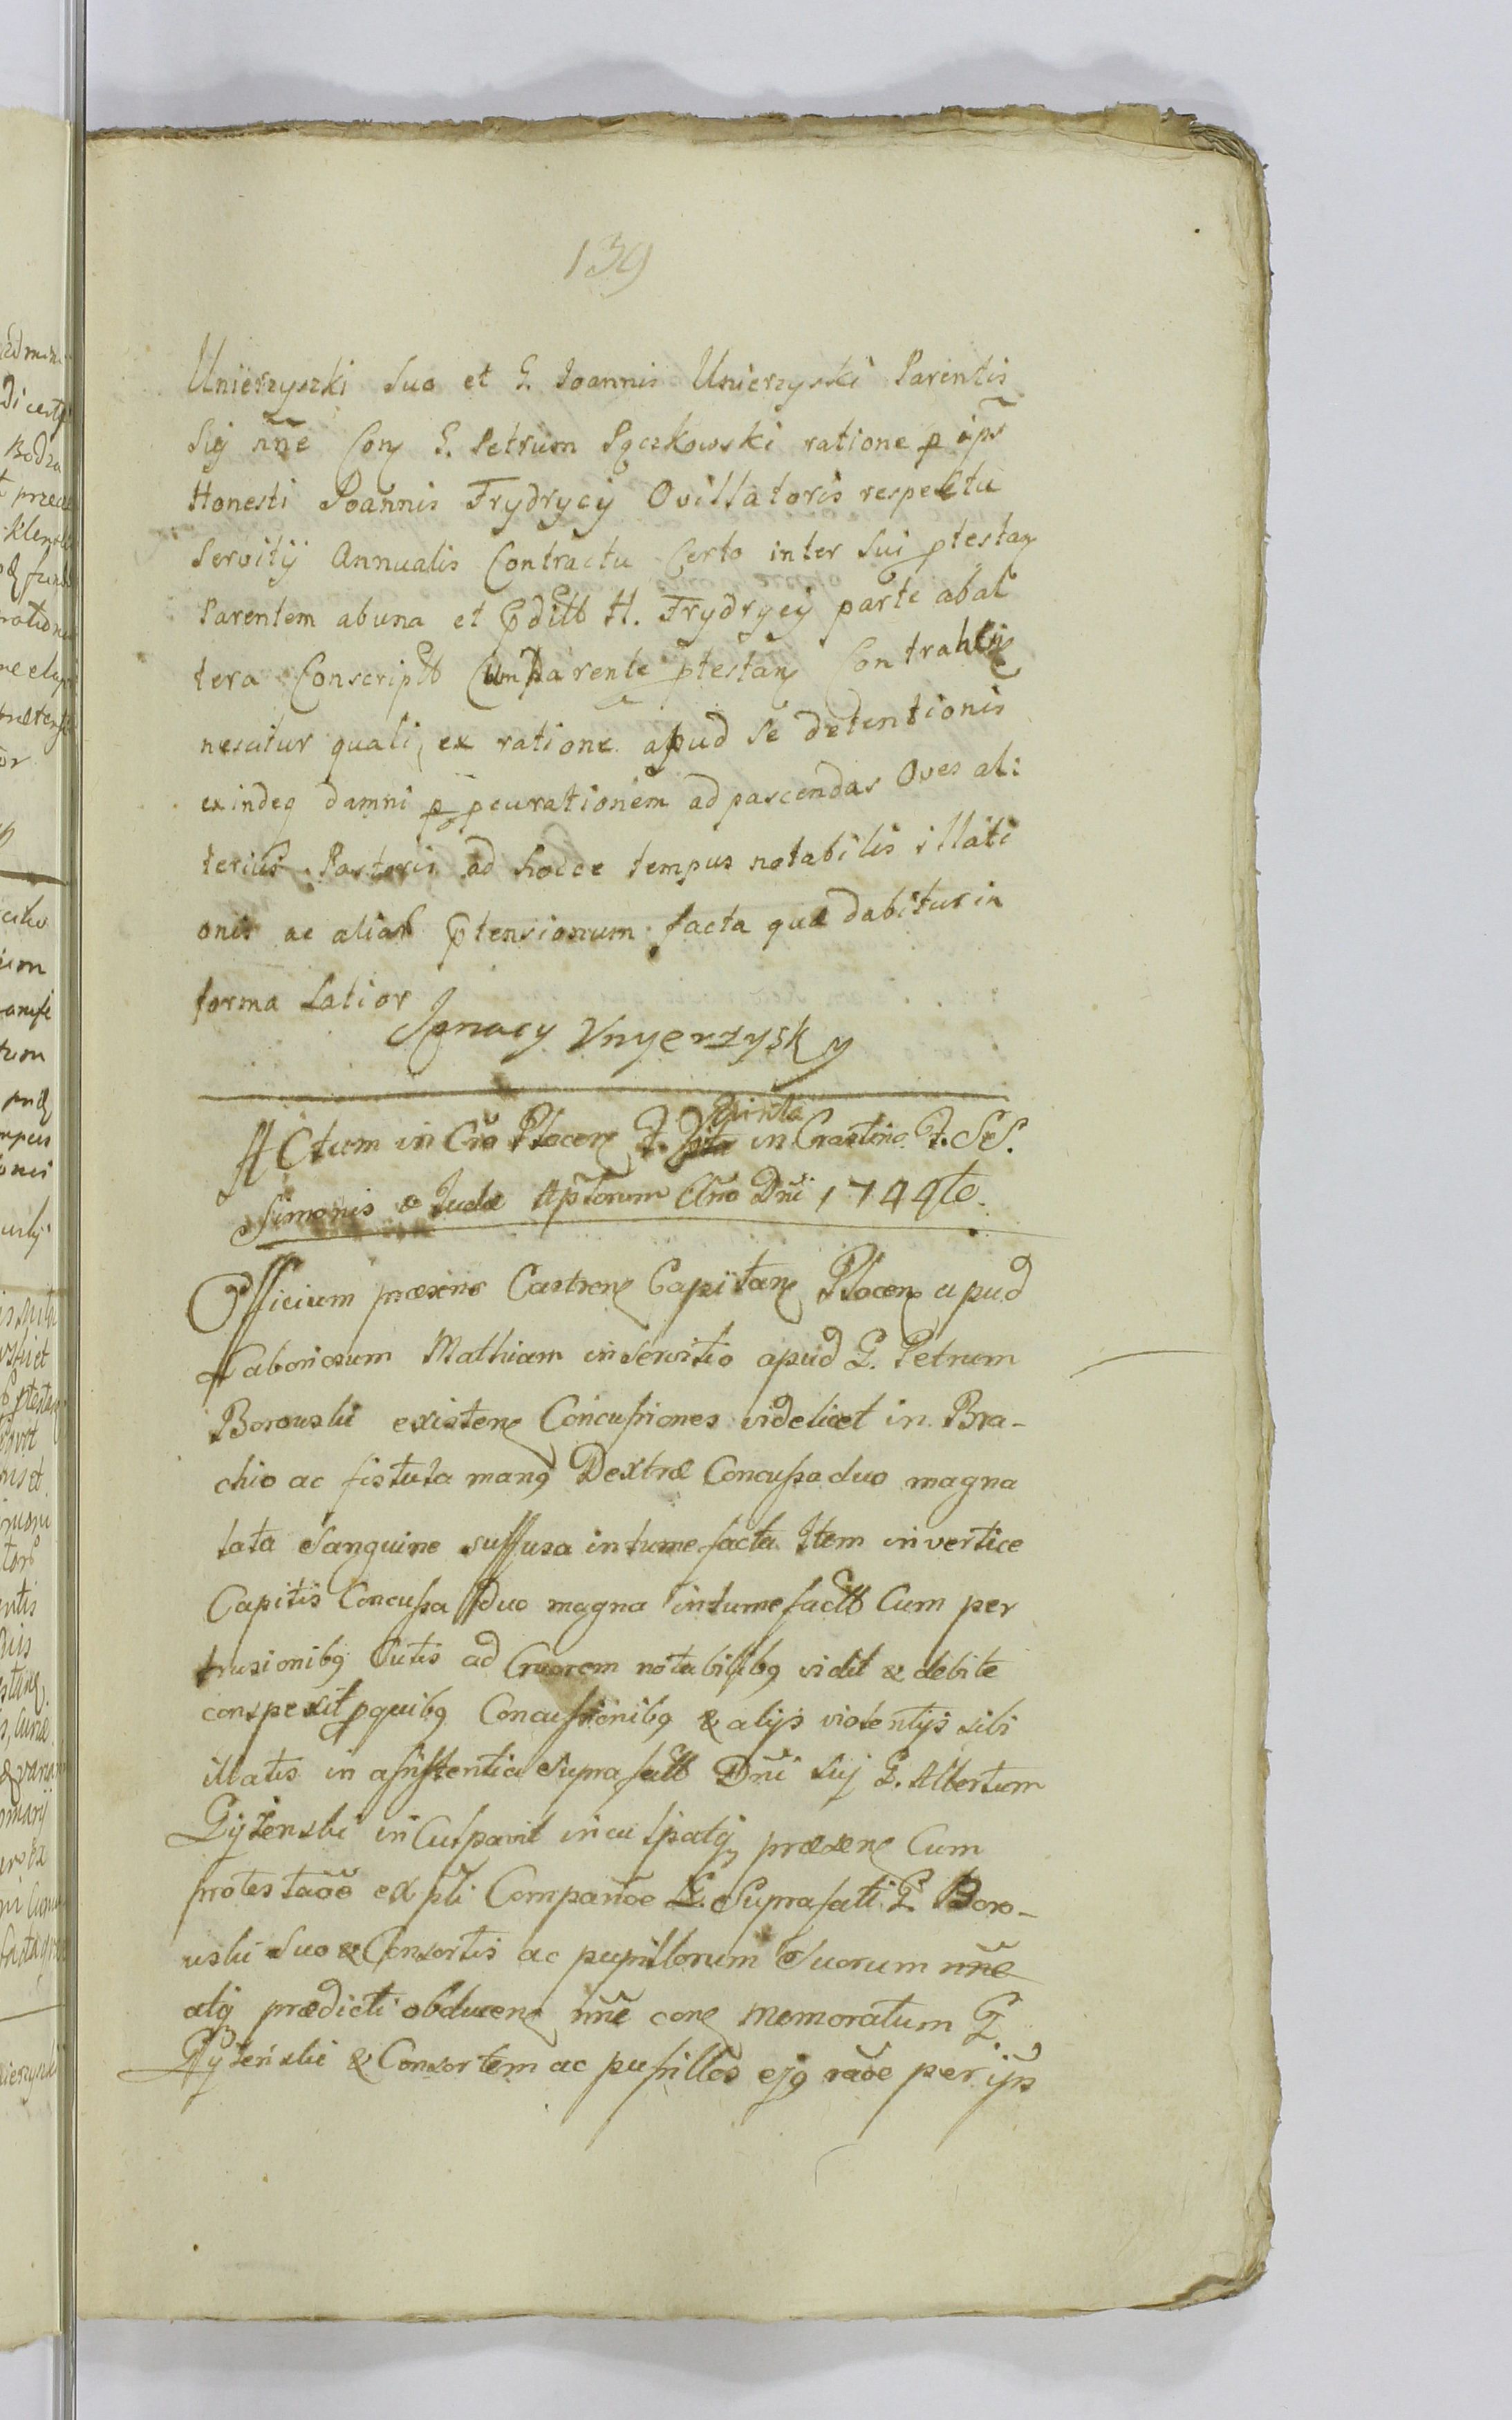 139
Unierzyszki Suo et G. Joannis Unierzyski Parentis
Sūi nñe Con̄ G. Petrum Pęczkowski ratione p ips̃
Honesti Joannis Frydrycÿ Ovillatoris respectu
Servitÿ Annualis Contractu Certo inter Sui ptestan̄
Parentem abuna et pditt H. Frydrycÿ parte abal
tera Conscriptt Cum Parente ptestan̄ Contrahen̄
nescitur quali, ex ratione apud se detentionis
exindeq damni p pcurationem ad pascendas Oves al:
terius Pastoris ad hocce tempus notabilis illati
onis ac aliar ptensionum facta quæ dabitur in
forma Latior
Ignacy Vnyerzysky
Quinta
ACtum in Crō Plocen̄ F. in Crastino F. SS.
Simonis & Judæ Aptlorum Año Dñi 1744to.
Officium præsens Castren̄ Capitan̄ Plocen̄ apud
Laboriosum Mathiam in Servitio apud G. Petrum
Borowski existen̄ Concussiones videlicet in Bra-
chio ac fistula manq Dextræ Concussa duo magna
lata Sanguine suffusa intumefacta Item in vertice
Capitis Concussa duo magna intumefactt Cum per
trusionibq Cutis ad Cruorem notabilibq vidit & debite
conspexit pquibq Concussionibq & alijs violentijs sibi
illatis in assistentia Suprafatt Dñi Suj G. Albertum
Gyżenski inCulpavit inculpatq præsen̄ Cum
protestāoe ex pti Companõe G. Suprafati G. Boro-
wski Suo & Consortis ac pupillorum Suorum nñe
atq prædicti obducen̄ nñe con̄ memoratum G.
Gyżeński & Consortem ac pupillos ejq rāoe per ijs